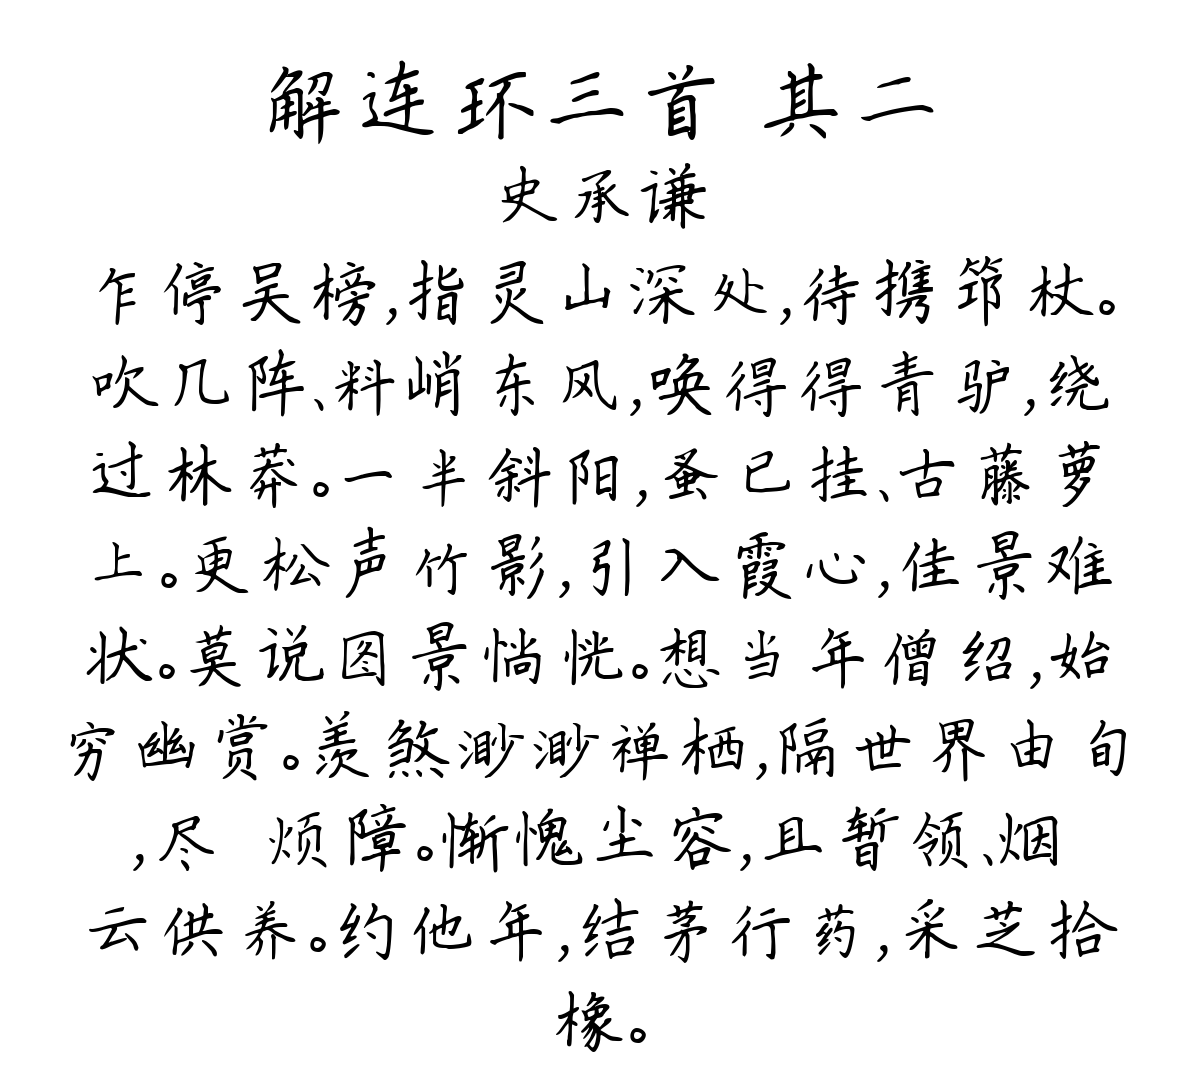 解连环三首 其二
史承谦
乍停吴榜,指灵山深处,待携筇杖。
吹几阵、料峭东风,唤得得青驴,绕
过林莽。一半斜阳,蚤已挂、古藤萝
上。更松声竹影,引入霞心,佳景难
状。莫说图景惝恍。想当年僧绍,始
穷幽赏。羡煞渺渺禅栖,隔世界由旬
,尽 烦障。惭愧尘容,且暂领、烟
云供养。约他年,结茅行药,采芝拾
橡。